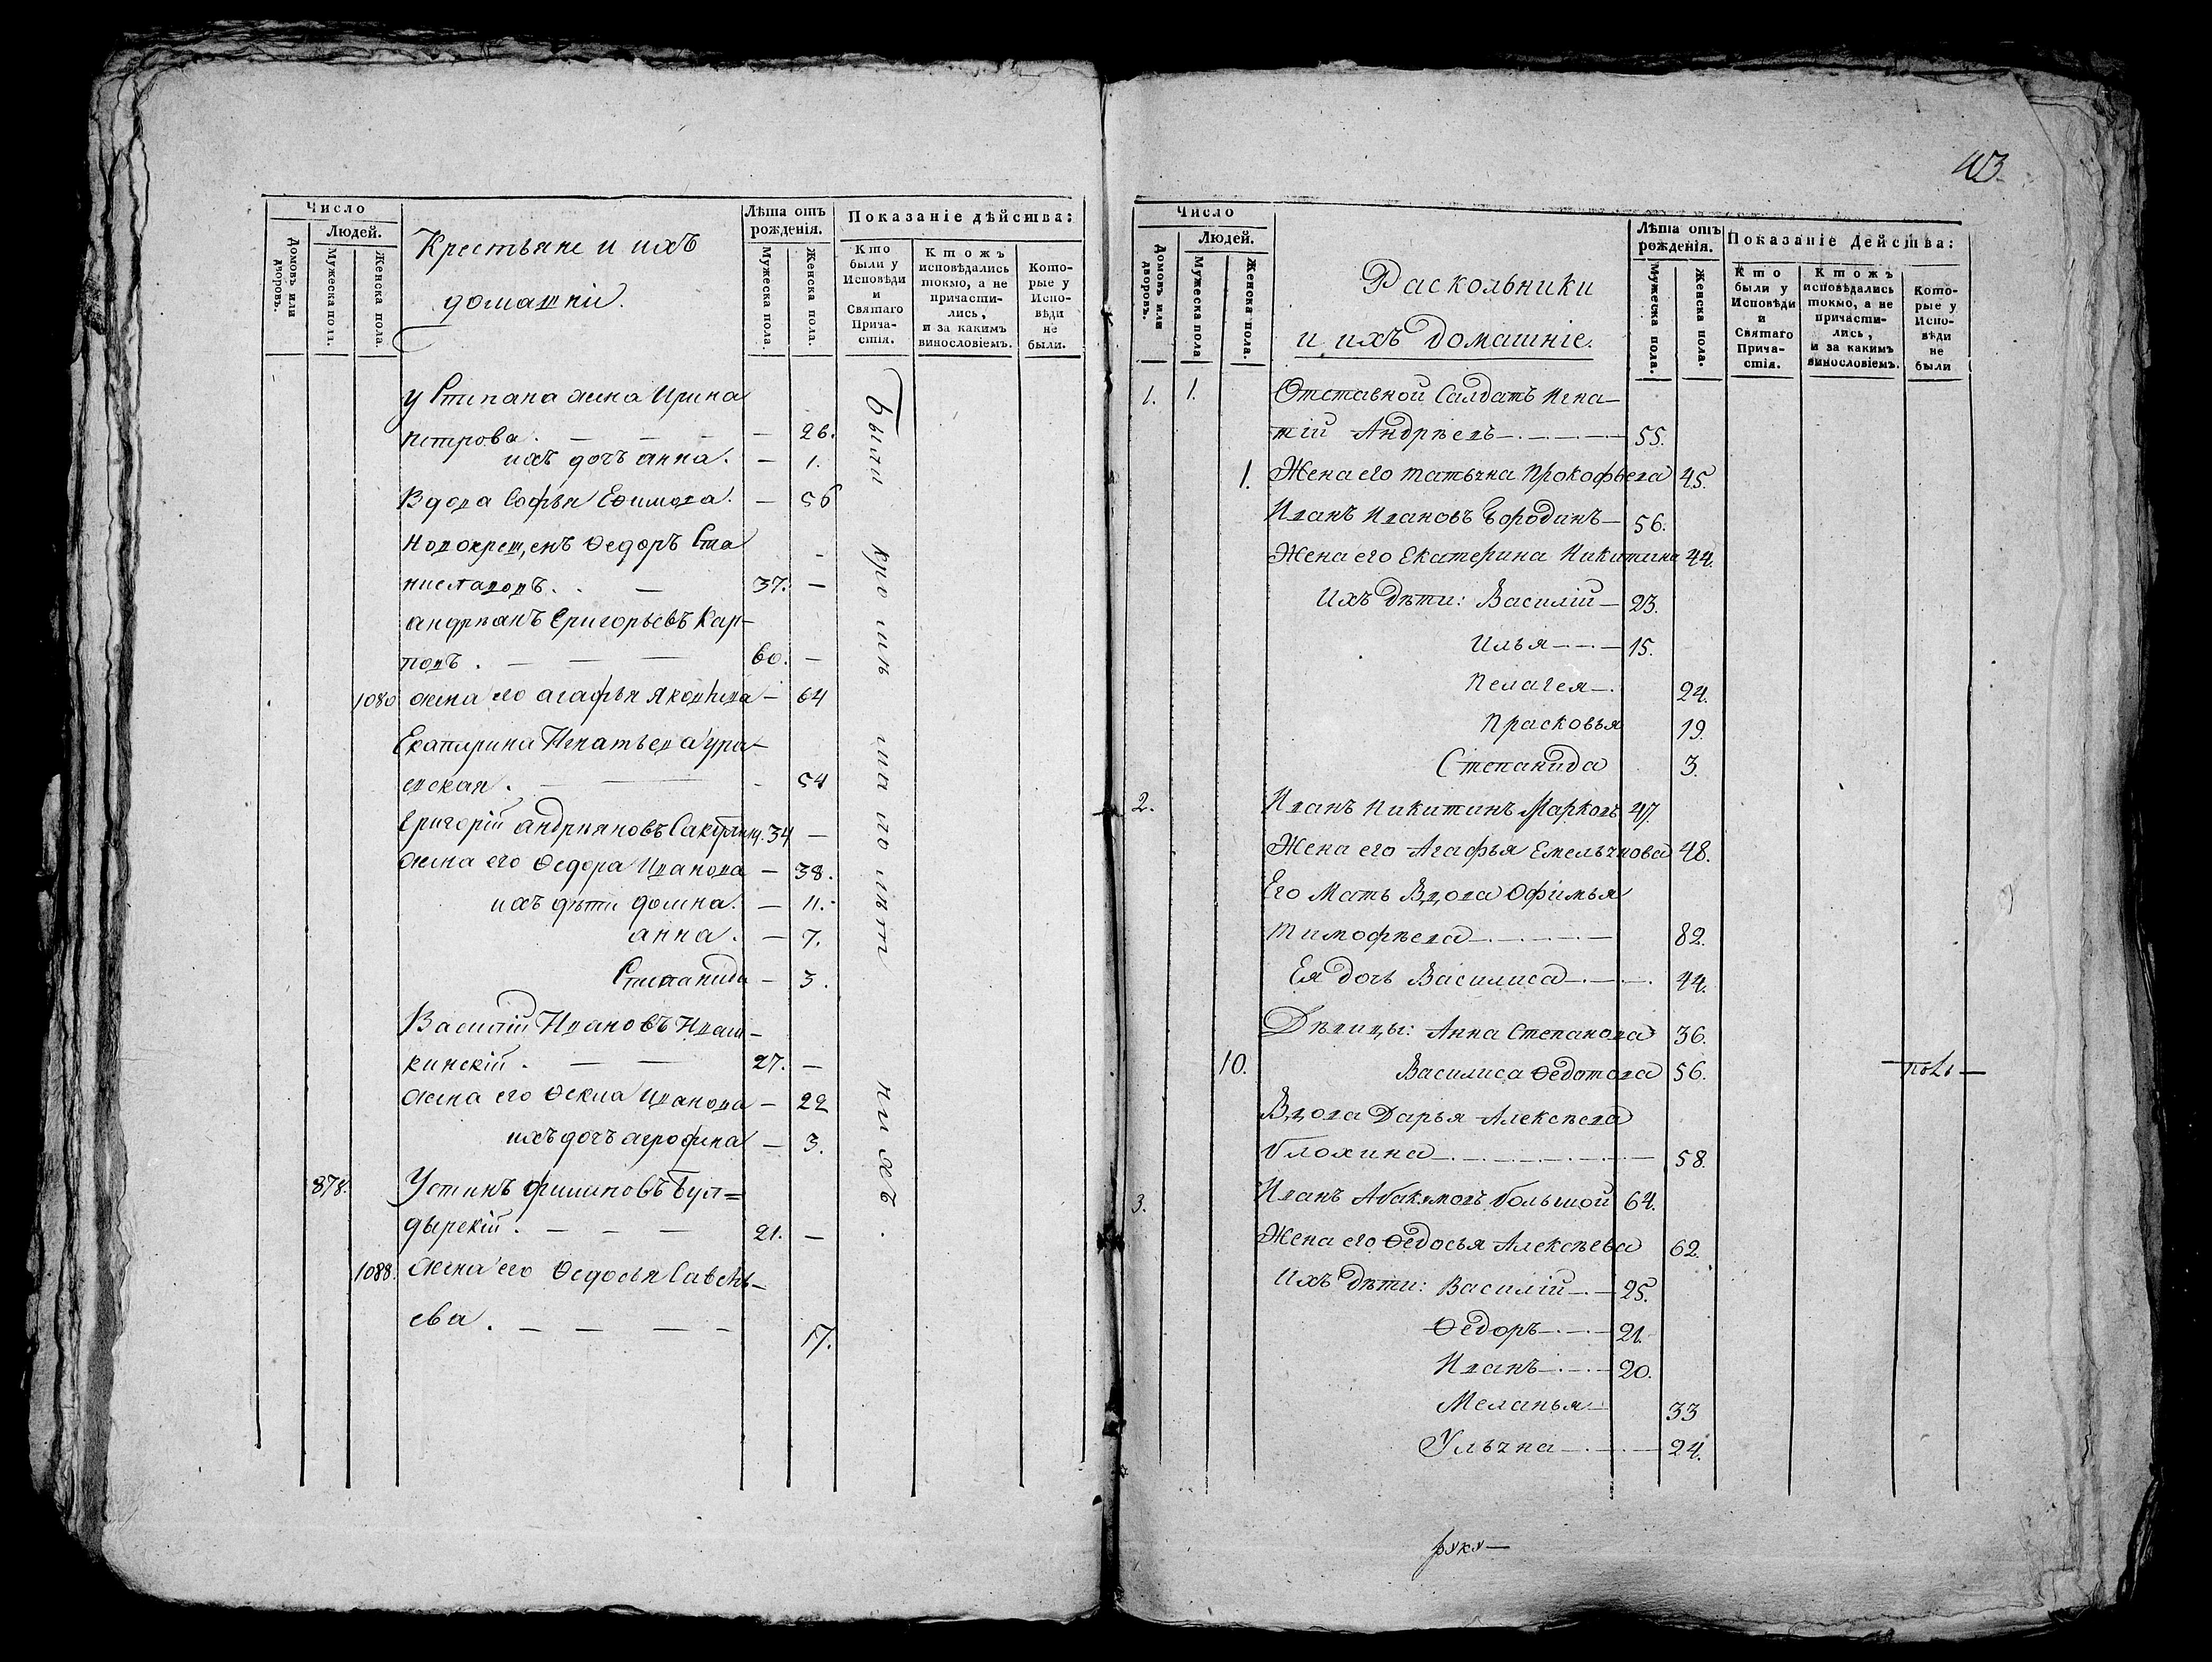 Число
Людей.
Домовъ или дворовъ.
Мужеска пола.
Женска пола.
Крестьяне и ихъ
домашніи.
Лѣта отъ рожденія.
Мужеска пола.
Женска пола.
Показаніе дѣйства:
Кто были у Исповѣди и Святаго Причастія.
Ктожъ исповѣдались токмо, а не причастились, и за какимъ винословіемъ.
Которые у Исповѣди не были.
у Степана жена Ирина
петрова. — — — — 26.
ихъ дочъ анна. — 1.
Вдова Софья Ефимова. — 56
Новокрещенъ Ѳедоръ Ста
ниславовъ. . — 37. —
андреанъ Григорьевъ Кар-
повъ . — — — 60. —
1080 жена его агафья Яковлева — 64
Екатерина Игнатьева
. — — - 54
Григорій андреяновъ 34 —
жена его Ѳедора Иванова — 38.
ихъ дѣти домна. — 11.
анна. — 7.
Степанида — 3.
Василій Ивановъ Иваш-
кинскій. — — 27. —
жена его Ѳекла Иванова — 22
ихъ дочъ агрофина — 3.
878. Устинъ филиповъ Бул=
дырскій. — — — 21. —
1088. жена его Ѳедосья Савель-
ева. — — — — 17.
были
нихъ.
43
Число
Людей.
Домовъ или дворовъ.
Мужеска пола
Женска пола.
Раскольники
и ихъ домашніе.
Лѣта отъ рожденія.
Мужеска пола.
Женска пола.
Показаніе Действа:
Кто были у Исповѣди и Святаго Причастія.
Ктожъ исповѣдались токмо, а не причастились, и за какимъ винословіемъ.
Которые у Исповѣди не были
1. 1. Отставной Салдатъ Игна-
тій Андрѣевъ 55.
1. Жена его татьяна Прокофьева 45.
Иванъ Ивановъ Бородинъ — 56.
Жена его Екатерина Никитина 44.
Ихъ дѣти: Василій — 23.
Илья — 15.
Пелагея — 24.
Прасковья 19.
Степанида 3.
2. Иванъ Никитинъ Марковъ 47.
Жена его Агафья Емельянова 48.
Его Мать Вдова Офимья
тимофѣева — 82.
Ея дочь Василиса — 44.
Дѣвицы: Анна Степанова 36.
10. Василиса Ѳедотова 56.
Вдова Дарья Алексѣева
Блохина — 58.
3. Иванъ Абакумовъ большой 64.
Жена его Ѳедосья Алексѣева 62.
Ихъ дѣти: Василій — 25.
Ѳедоръ — 21.
Иванъ — 20.
Меланья — 33
Ульяна — 24.